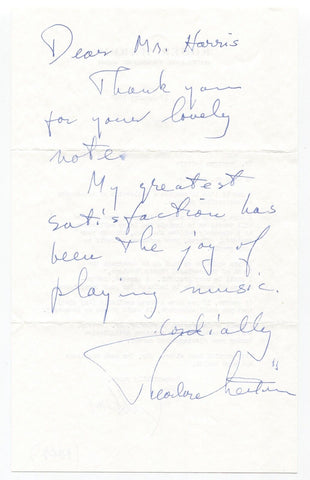 Dear Mr. Harris
Thank you
for your lovely
note.
My greatest
satisfaction has
been the joy of
playing music.
Cordially
Theodore